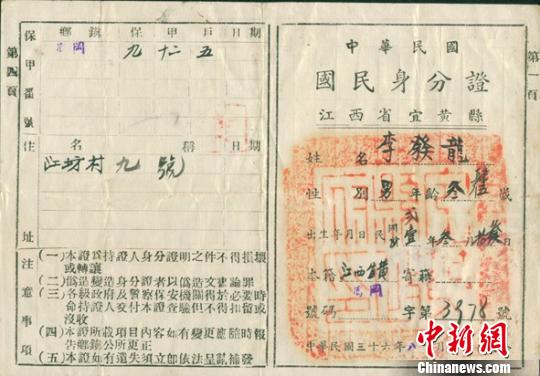 第一頁
中華民國
國民身分證
江西省宜黃縣
姓名 李發龍
性別 男 年齡 叁 歲
出生年月日 民國前 年 叁月 日
本籍 江西宜黃 寄籍
鳳岡
號碼 字第3978號
中華民國三十六年八月
第四頁
保甲番號
鄉鎮 保 甲 戶 日期
鳳岡 九 十二 五
住址
名稱 日期
江坊村九號
注意事項
(一)本證爲持證人身分證明之件不得損壞或轉讓
(二)僞造變造身分證者以僞造文書論罪
(三)各級政府及警察保安機關得於必要時命持證人交付本證查驗但不得扣留或沒收
(四)本證所載項目內容如有變更應隨時報告鄉鎮公所更正
(五)本證如有遺失須立卽依法呈請補發
中新網
WWW.CHINANEWS.COM